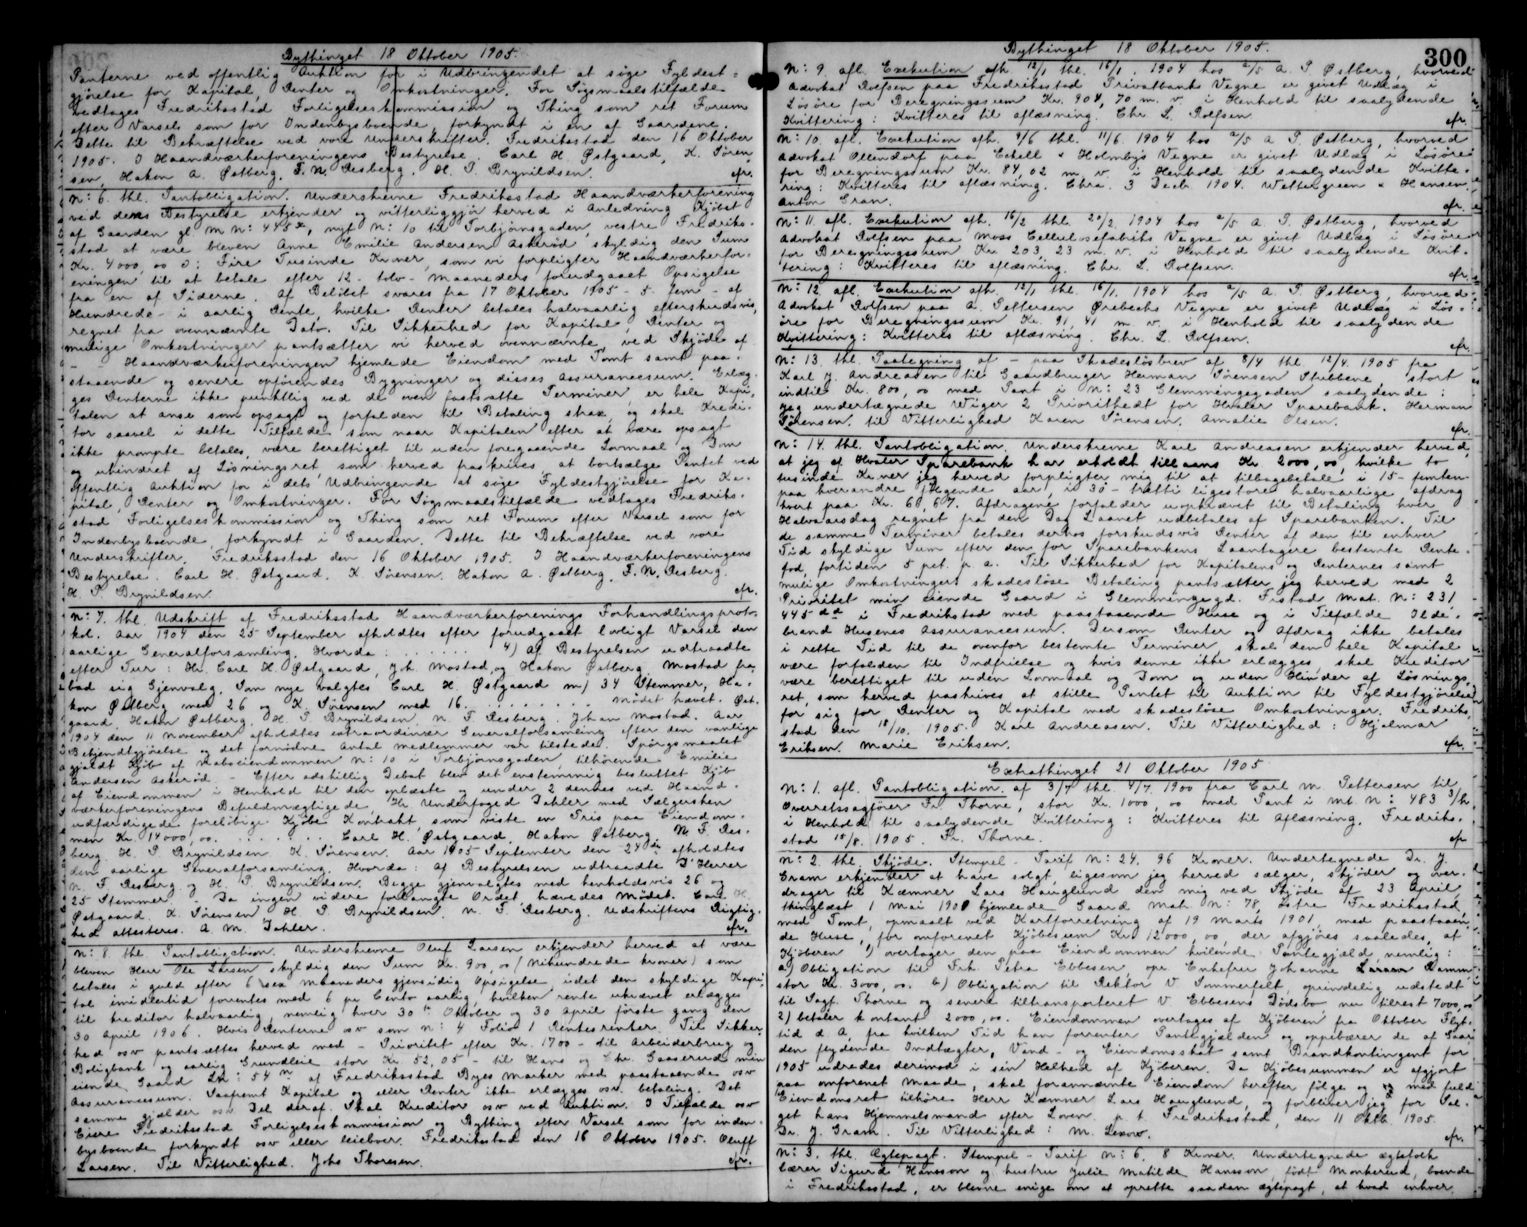 Bythinget 18 Oktober 1905.
Panterne ved offentlig Auktion for i Udbringendet at söge Fyldest-
gjörelse for Kapital, Renter og Omkostninger. For Sögsmaalstilfælde
vedtages Fredriksstad Forligelseskommission og Thing som ret Forum
efter Varsel som for Indenbysboende forkyndt i en af Gaardene.
Dette til Bekræftelse ved vore Underskrifter. Fredriksstad den 16 Oktober
1905. I Haandværkerforeningens Bestyrelse. Carl H. Östgaard, K. Sören
sen, Hakon A. Östberg. F. N. Resberg. H. P. Brynildsen.
N: 6. thl. Pantobligation. Underskrevne Fredriksstad Haandværkerforening
ved dens Bestyrelse erkjender og vitterliggjör herved i Anledning Kjöbet
af Gaarden gl. M N: 448, nyt N: 10 til Torbjörnsgaden, vestre Fredriks-
stad at være bleven Anne Emilie Andersen Askeröd skyldig den Sum
Kr. 4000,00 ɔ: Fire Tusinde Kroner, som vi forpligter Haandværkerfor-
eningen til at betale efter 12 - tolv - Maaneders forudgaaet Opsigelse
fra en af Siderne. Af Belöbet svares fra 17 Oktober 1905 - 5 - fem - af
Hundrede - i aarlig Rente, hvilke Renter betales halvaarlig efterskudsvis,
regnet fra ovennævnte Dato. Til Sikkerhed for Kapital, Renter og
mulige Omkostninger pantsætter vi herved ovennævnte, ved Skjöde af
- - Haandværkerforeningen hjemlede Eiendom med Tomt samt paa-
staaende og senere opförendes Bygninger og disses Assurancesum. Erlæg-
ges Renterne ikke punktlig ved de oven fastsatte Terminer, er hele Kapi-
talen at anse som opsagt og forfalden til Betaling strax og skal Kredi-
tor saavel i dette Tilfælde som naar Kapitalen efter at være opsagt
ikke prompte betales, være berettiget til uden foregaaende Lovmaal og Dom
og uhindret af Lösningsret, som herved fraskrives, at bortsælge Pantet ved
offentlig Auktion for i dets Udbringende at söge Fyldestgjörelse for Ka-
pital, Renter og Omkostninger. For Sögsmaalstilfælde vedtages Fredriks-
stad Forligelseskommission og Thing som ret Forum efter Varsel som for
Indenbysboende, forkyndt i Gaarden. Dette til Bekræftelse ved vore
Underskrifter. Fredriksstad den 16 Oktober 1905. I Haandværkerforeningens
Bestyrelse. Carl H. Östgaard. K. Sörensen. Hakon A. Östberg. F. N. Resberg.
H. P. Brynildsen.
N: 7. thl. Udskrift af Fredriksstad Haandværkerforenings Forhandlingsproto-
kol. Aar 1904 den 25 September afholdtes efter forudgaaet lovligt Varsel den
aarlige Generalforsamling. Hvorda: . . . . . . 4) Af Bestyrelsen udtraadte
efter Tur: Hr. Carl H. Östgaard, Joh. Mostad og Hakon Östberg. Mostad fra-
bad sig Gjenvalg. Som nye valgtes Carl H. Östgaard m/ 34 Stemmer, Ha-
kon Östberg med 26 og K. Sörensen med 16. . . . . . . . Mödet hævet. Öst-
gaard. Hakon Östberg. H. P. Brynildsen. N. F. Resberg. Johan Mostad. Aar
1904 den 11 November afholdtes extraordinær Generalforsamling efter den vanlige
Bekjendtgjörelse og det fornödne Antal Medlemmer var tilstede. Spörgsmaalet
gjaldt Kjöb af Nabo­eiendommen N: 10 i Torbjörnsgaden, tilhörende Emilie
Andersen Askeröd - Efter adskillig Debat blev det enstemmig besluttet Kjöb
af Eiendommen i Henhold til den oplæste og under 2 dennes ved Haand-
værkerforeningens Befuldmægtigede, Hr. Underfoged Dahler med Sælgersken
udfærdigede foreløbige Kjöbe Kontrakt som viste en Pris paa Eiendom-
men Kr. 14000,00. . . . . . . Carl H. Östgaard. Hakon Östberg. N. F. Res-
berg. H. P. Brynildsen. K. Sörensen. Aar 1905 September den 24de afholdtes
den aarlige Generalforsamling. Hvorda: af Bestyrelsen udtraadte D'Herrer
N. F. Resberg og H. P. Brynildsen. Begge gjenvalgtes med henholdsvis 26 og
25 Stemmer. Da ingen videre forlangte Ordet hævedes Mödet. Carl H.
Östgaard. K. Sörensen. H. P. Brynildsen. N. F. Resberg. Udskriftens Rigtig-
hed attesteres. A. M. Dahler.
N: 8. thl. Pantobligation. Underskrevne Oluf Larsen erkjender herved at være
bleven Herr Ole Larsen skyldig den Sum Kr. 900,00 (Nihundrede kroner) som
betales i guld efter 6 sex maaneders gjensidig Opsigelse, idet den skyldige Kapi-
tal imidlertid forrentes med 6 pr. Cento aarlig, hvilken rente ukrævet erlægges
til kreditor halvaarlig, nemlig hver 30te Oktober og 30 April förste gang den
30 April 1906. Hvis Renterne osv som N: 4 Folio 1 Rentesrenter. Til Sikker-
hed osv pantsættes herved med - Prioritet efter Kr. 1700 - til Arbeiderbrug og
Boligbank og aarlig Grundleie stor Kr. 52,05 - til Hans og Chr. Gaaserud min
eiende Gaard LN: 54 af Fredriksstad Byes Marker med paastaaende osv
Assurancesum. Saafremt Kapital og eller Renter ikke erlægges osv. betaling. Det
samme gjælder osv. Del deraf. Skal Kreditor osv ved Auktion. I Tilfælde osv
Eiere Fredriksstad Forligelseskommission og Bything efter Varsel som for inden-
bysboende, forkyndt osv eller leieboer. Fredriksstad den 16 Oktober 1905. Oluff
Larsen. Til Vitterlighed. Johs Thoresen.
Bythinget 18 Oktober 1905.
300
N: 9. afl. Exekution afh. 12/1 thl. 16/1. 1904 hos A. P. Østberg, hvorved
Advokat Rolfsen paa Fredriksstad Privatbanks Vegne er givet Udlæg i
Lösöre for Beregningssum Kr. 908,70 m. v. i Henhold til saalydende
Kvittering: Kvitteres til aflæsning. Chr. L. Rolfsen.
N: 10. afl. Exekution afh. 9/6 thl. 11/6. 1904 hos A. P. Østberg, hvorved
Advokat Ollendorf paa Eckell & Holmbys Vegne er givet Udlæg i Lösöre
for Beregningssum Kr. 84,02 m. v. i Henhold til saalydende Kvitte-
ring: Kvitteres til aflæsning. Chra. 3 Decb. 1904. Wettergreen & Hansen.
Anton Gran.
N: 11. afl. Exekution afh. 16/2 thl. 20/2. 1904 hos A. P. Østberg, hvorved
Advokat Rolfsen paa Moss Cellulosefabriks Vegne er givet Udlæg i Lösöre
for Beregningssum Kr. 203,23 m. v. i Henhold til saalydende Kvit-
tering: Kvitteres til aflæsning. Chr. L. Rolfsen.
N: 12. afl. Exekution afh. 12/1 thl. 16/1. 1904 hos A. P. Østberg, hvorved
Advokat Rolfsen paa A. Pettersen Ørebechs Vegne er givet Udlæg i Lös-
öre for Beregningssum Kr. 91,41 m. v. i Henhold til saalydende
Kvittering: Kvitteres til aflæsning. Chr. L. Rolfsen.
N: 13. thl. Paategning af - paa Skadeslösbrev af 8/4 thl. 12/4. 1905 fra
Karl J. Andreasen til Gaardbruger Herman Sörensen Stubbene stort
indtil Kr. 800,00 med Pant i N: 23 Glemmengegaden saalydende:
Jeg undertegnede viger 2 Priorithedt for Hvaler Sparebank. Herman
Sörensen. til Vitterlighed Karen Sörensen. Amalie Olsen.
N: 14. thl. Pantobligation. Underskrevne Karl Andreasen erkjender herved,
at jeg af Hvaler Sparebank har erholdt tillaans Kr. 2000,00, hvilke to
tusinde Kroner jeg herved forpligter mig til at tilbagebetale i 15 - femten -
paa hverandre fölgende aar, i 30 - tretti ligestore halvaarlige afdrag
hvert paa Kr. 66,67. Afdragene forfalder uopkrævet til Betaling hver
Halvaarsdag regnet fra den Dag Laanet udbetales af Sparebanken. Til
de samme Terminer betales derhos forskudsvis Renter af den til enhver
Tid skyldige Sum efter den for Sparebankens Laantagere bestemte Rente-
fod, fortiden 5 pct. p. a. Til Sikkerhed for Kapitalens og Renternes samt
mulige Omkostningers skadeslöse Betaling pantsætter jeg herved med 2
Prioritet min eiende Gaard i Glemmingegd. F.stad Mat. N: 231
445 i Fredrikstad med paastaaende Huse og i Tilfælde Ilde-
brand Husenes Assurancesum. Dersom Renter og Afdrag ikke betales
i rette Tid til de ovenfor bestemte Terminer, skal den hele Kapital
være forfalden til Indfrielse og hvis denne ikke erlægges, skal Kreditor
være berettiget til uden Lovmaal og Dom og uden Hinder af Lösnings-
ret, som herved fraskrives at stille Pantet til Auktion til Fyldestgjörelse
for sig for Renter og Kapital med skadeslöse Omkostninger. Fredriks-
stad den 18/10. 1905. Karl Andreasen. Til Vitterlighed: Hjalmar
Eriksen. Marie Eriksen.
Extrathinget 21 Oktober 1905
N: 1. afl. Pantobligation af 3/7 thl. 4/7. 1900 fra Carl M. Pettersen til
Overretssagförer Fr. Thorne, stor Kr. 1000,00 med Pant i Mt. N: 483
i Henhold til saalydende Kvittering: Kvitteres til Aflæsning. Fredriks-
stad 15/8. 1905. Fr. Thorne.
N: 2. thl. Skjöde. Stempel - Tarif N: 24. 96 Kroner. Undertegnede Dr. J.
Gram erkjender at have solgt, ligesom jeg herved sælger, skjöder og over-
drager til Kæmner Lars Hauglund den mig ved Skjöde af 23 April,
thinglæst 1 Mai 1901 hjemlede Gaard Mat. N: 78, Östre Fredriksstad,
med Tomt, opmaalt ved Kartforretning af 19 Marts 1901, med paastaaen-
de Huse, for omforenet Kjöbesum Kr. 12000,00, der afgjöres saaledes, at
Kjöberen 1) overtager den paa Eiendommen hvilende Pantegjæld, nemlig:
a) Obligation til Frk. Petra Ebbesen, opr. Enkefru Johanne Larssen Ramm
stor Kr. 3000,00. b) Obligation til Rektor V. Sommerfelt, oprindelig udstedt
til Sagf. Thorne og senere tiltransporteret V. Ebbesens Dödsbo nu tilrest 7000,00
2) betaler kontant 2000,00. Eiendommen overtages af Kjöberen fra Oktober Flyt-
tid d. A., fra hvilken Tid han forrenter Pantegjælden og oppebærer de af Gaar-
den flydende Indtægter, Vand- og Eiendomsskat samt Brandkontingent for
1905 udredes derimod i sin Helhed af Kjöberen. Da Kjöbesummen er afgjort
paa omforenet Maade, skal forannævnte Eiendom herefter fölge og med fuld
Eiendomsret tilhöre Herr Kæmner Lars Hauglund, og forbliver jeg for Sal-
get hans Hjemmelsmand efter Loven. p. t. Fredriksstad, den 11 Oktb. 1905.
Dr. J. Gram. Til Vitterlighed: M. Lexow.
N: 3. thl. Ægtepagt. Stempel - Tarif N: 6. 8 Kroner. Undertegnede ægtefolk
lærer Sigurd Hansson og hustru Julie Matilde Hansson, född Monkerud, boende
i Fredriksstad, er blevne enige om at oprette saadan ægtepagt, at hvad enhver